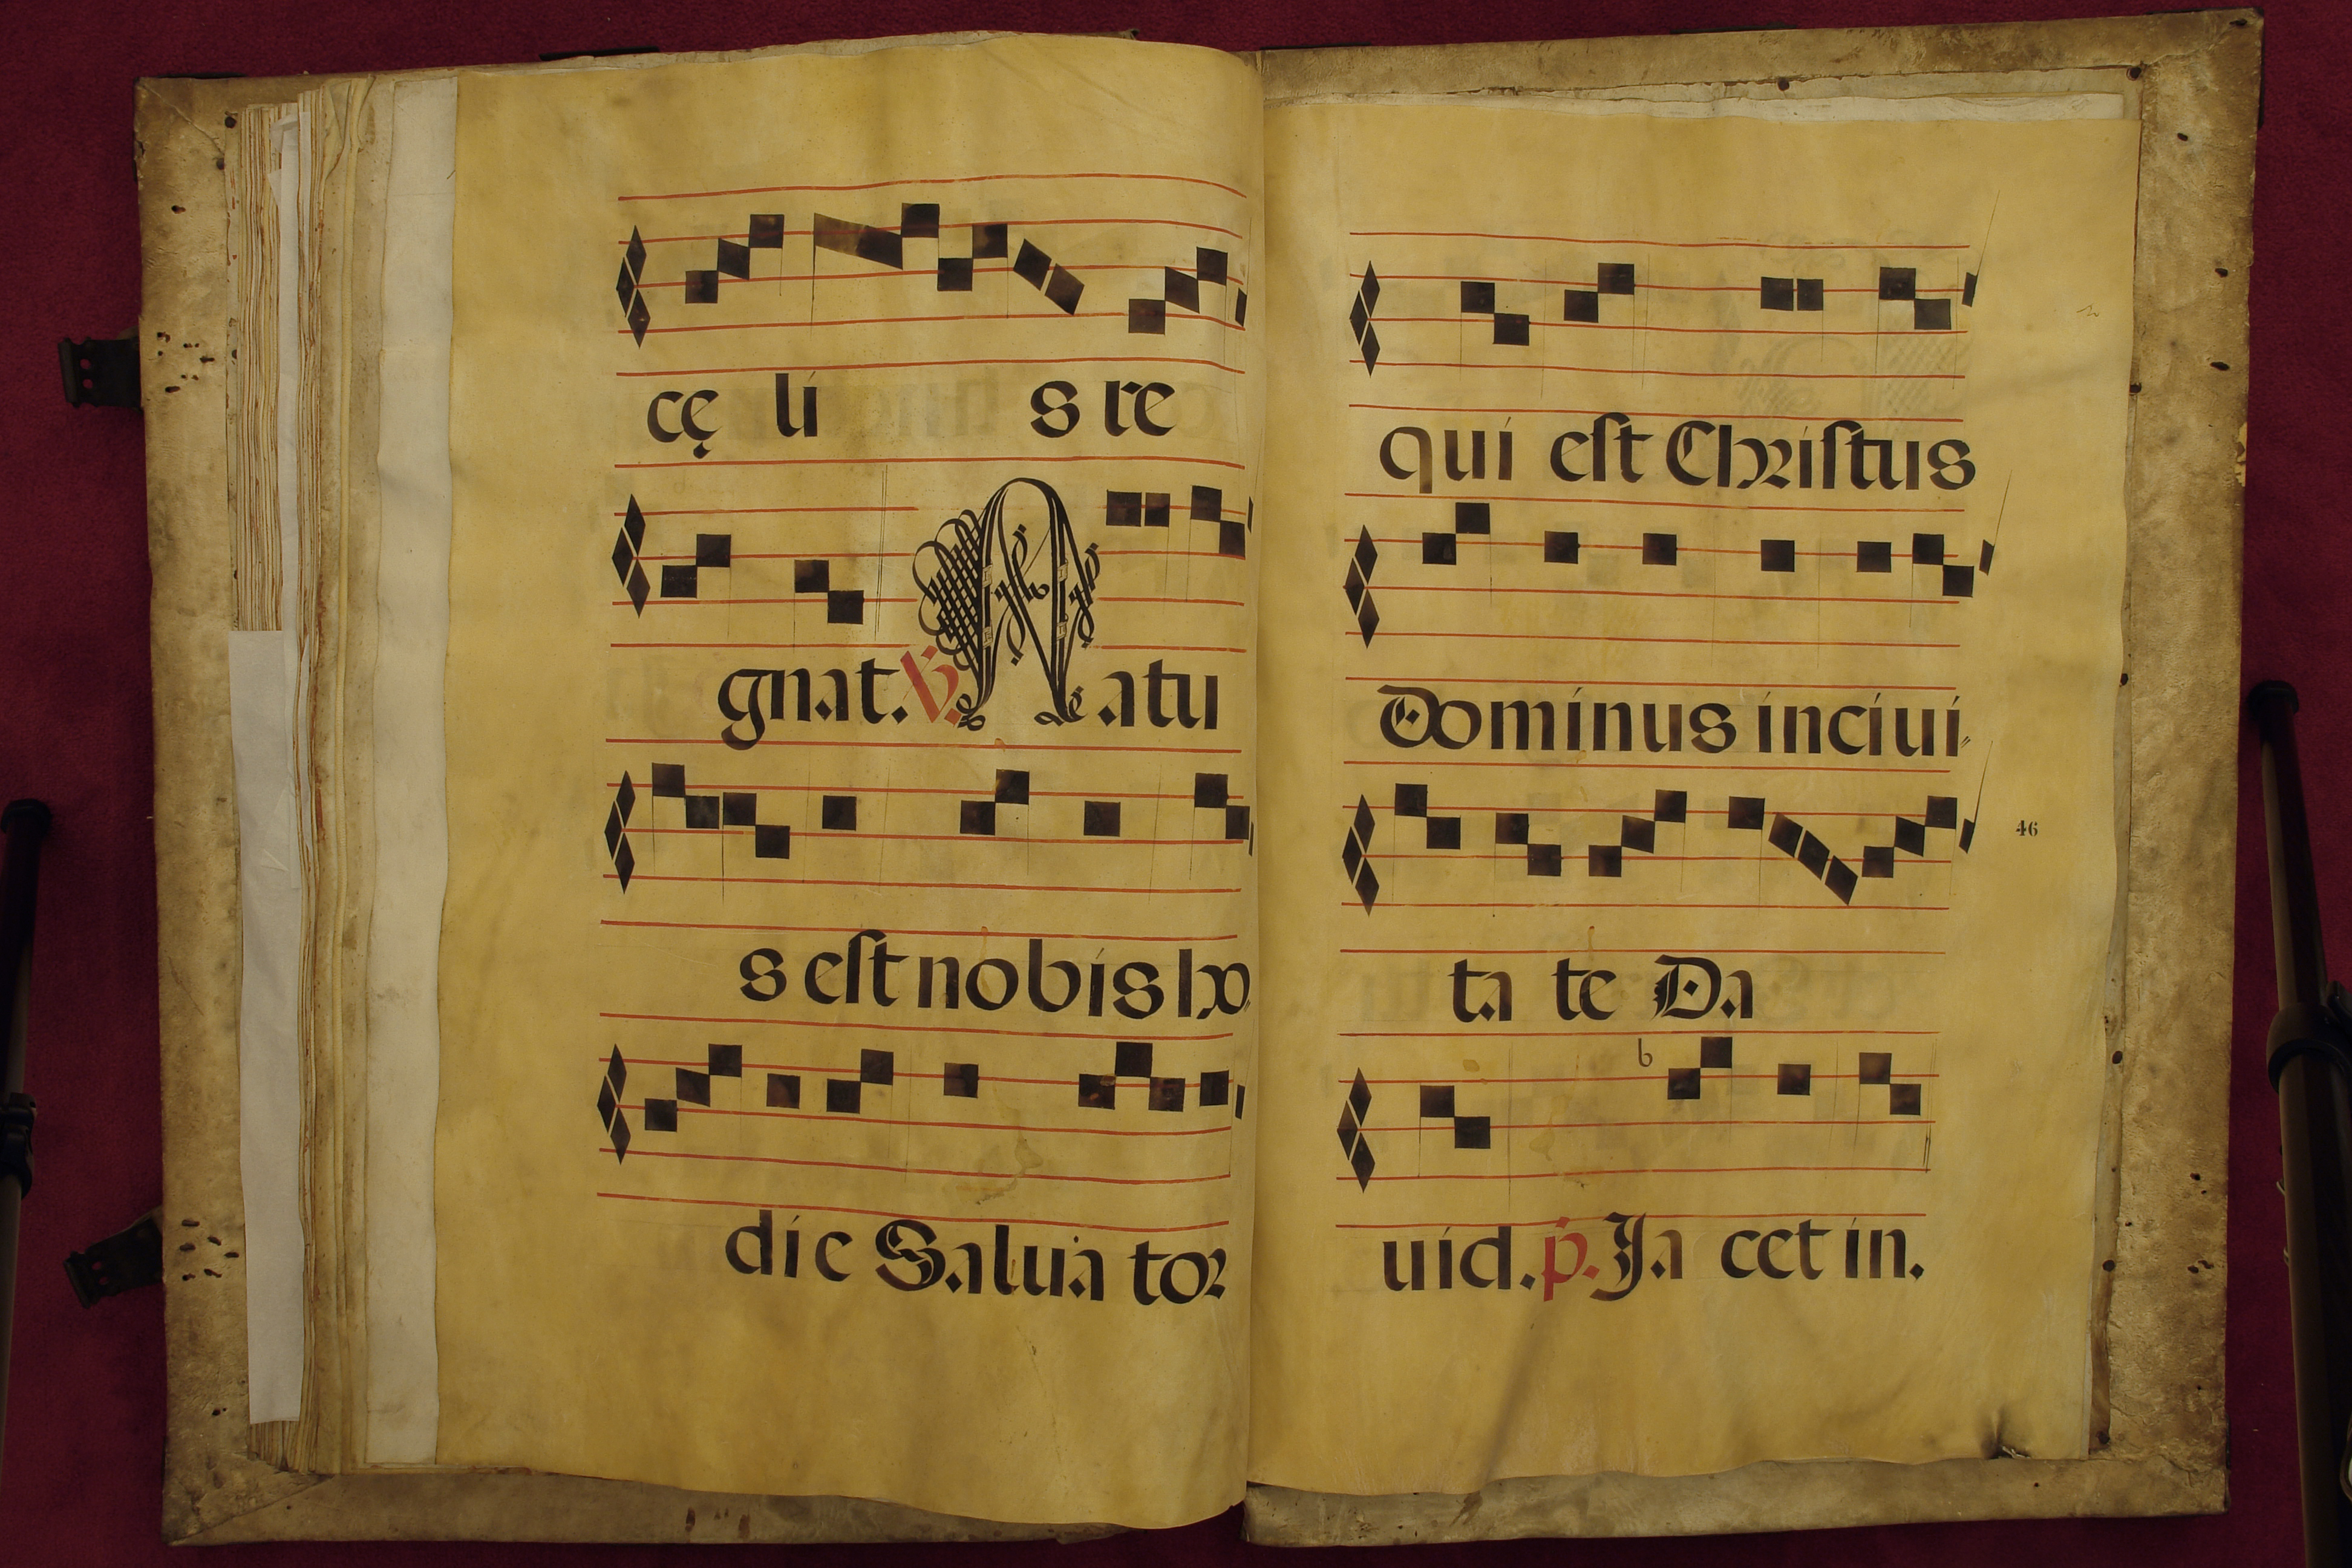 cę li s re
gnat. ℣. Natu
s est nobis ho
die Salua tor
qui est Christus
Dominus in ciui
ta te Da
46
b
uid. p. Ja cet in.